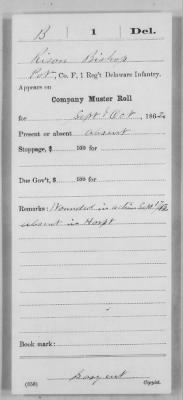 B | 1 | Del.
Rison Bishop
Pvt., Co. F, 1 Reg't Delaware Infantry.
Appears on
Company Muster Roll
for Sept & Oct, 1862
Present or absent Absent
Stoppage, $ 100 for
Due Gov't, $ 100 for
Remarks: Wounded in action Sept 17/62
absent in Hospt
Book mark:
Sargent
(358) Copyist.